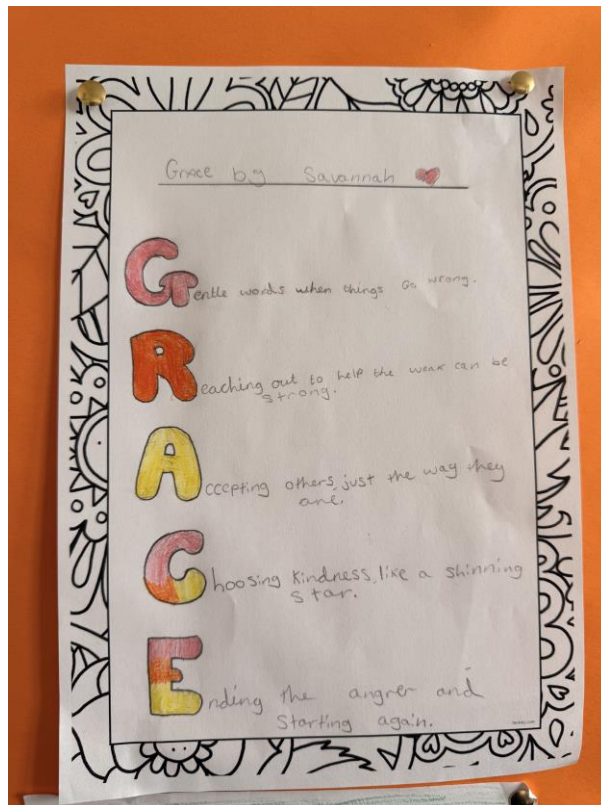 Grace by Savannah
Gentle words when things Go wrong.
Reaching out to help the weak can be
strong.
Accepting others, just the way they
are.
Choosing kindness, like a shinning
star.
Ending the angrer and
Starting again.